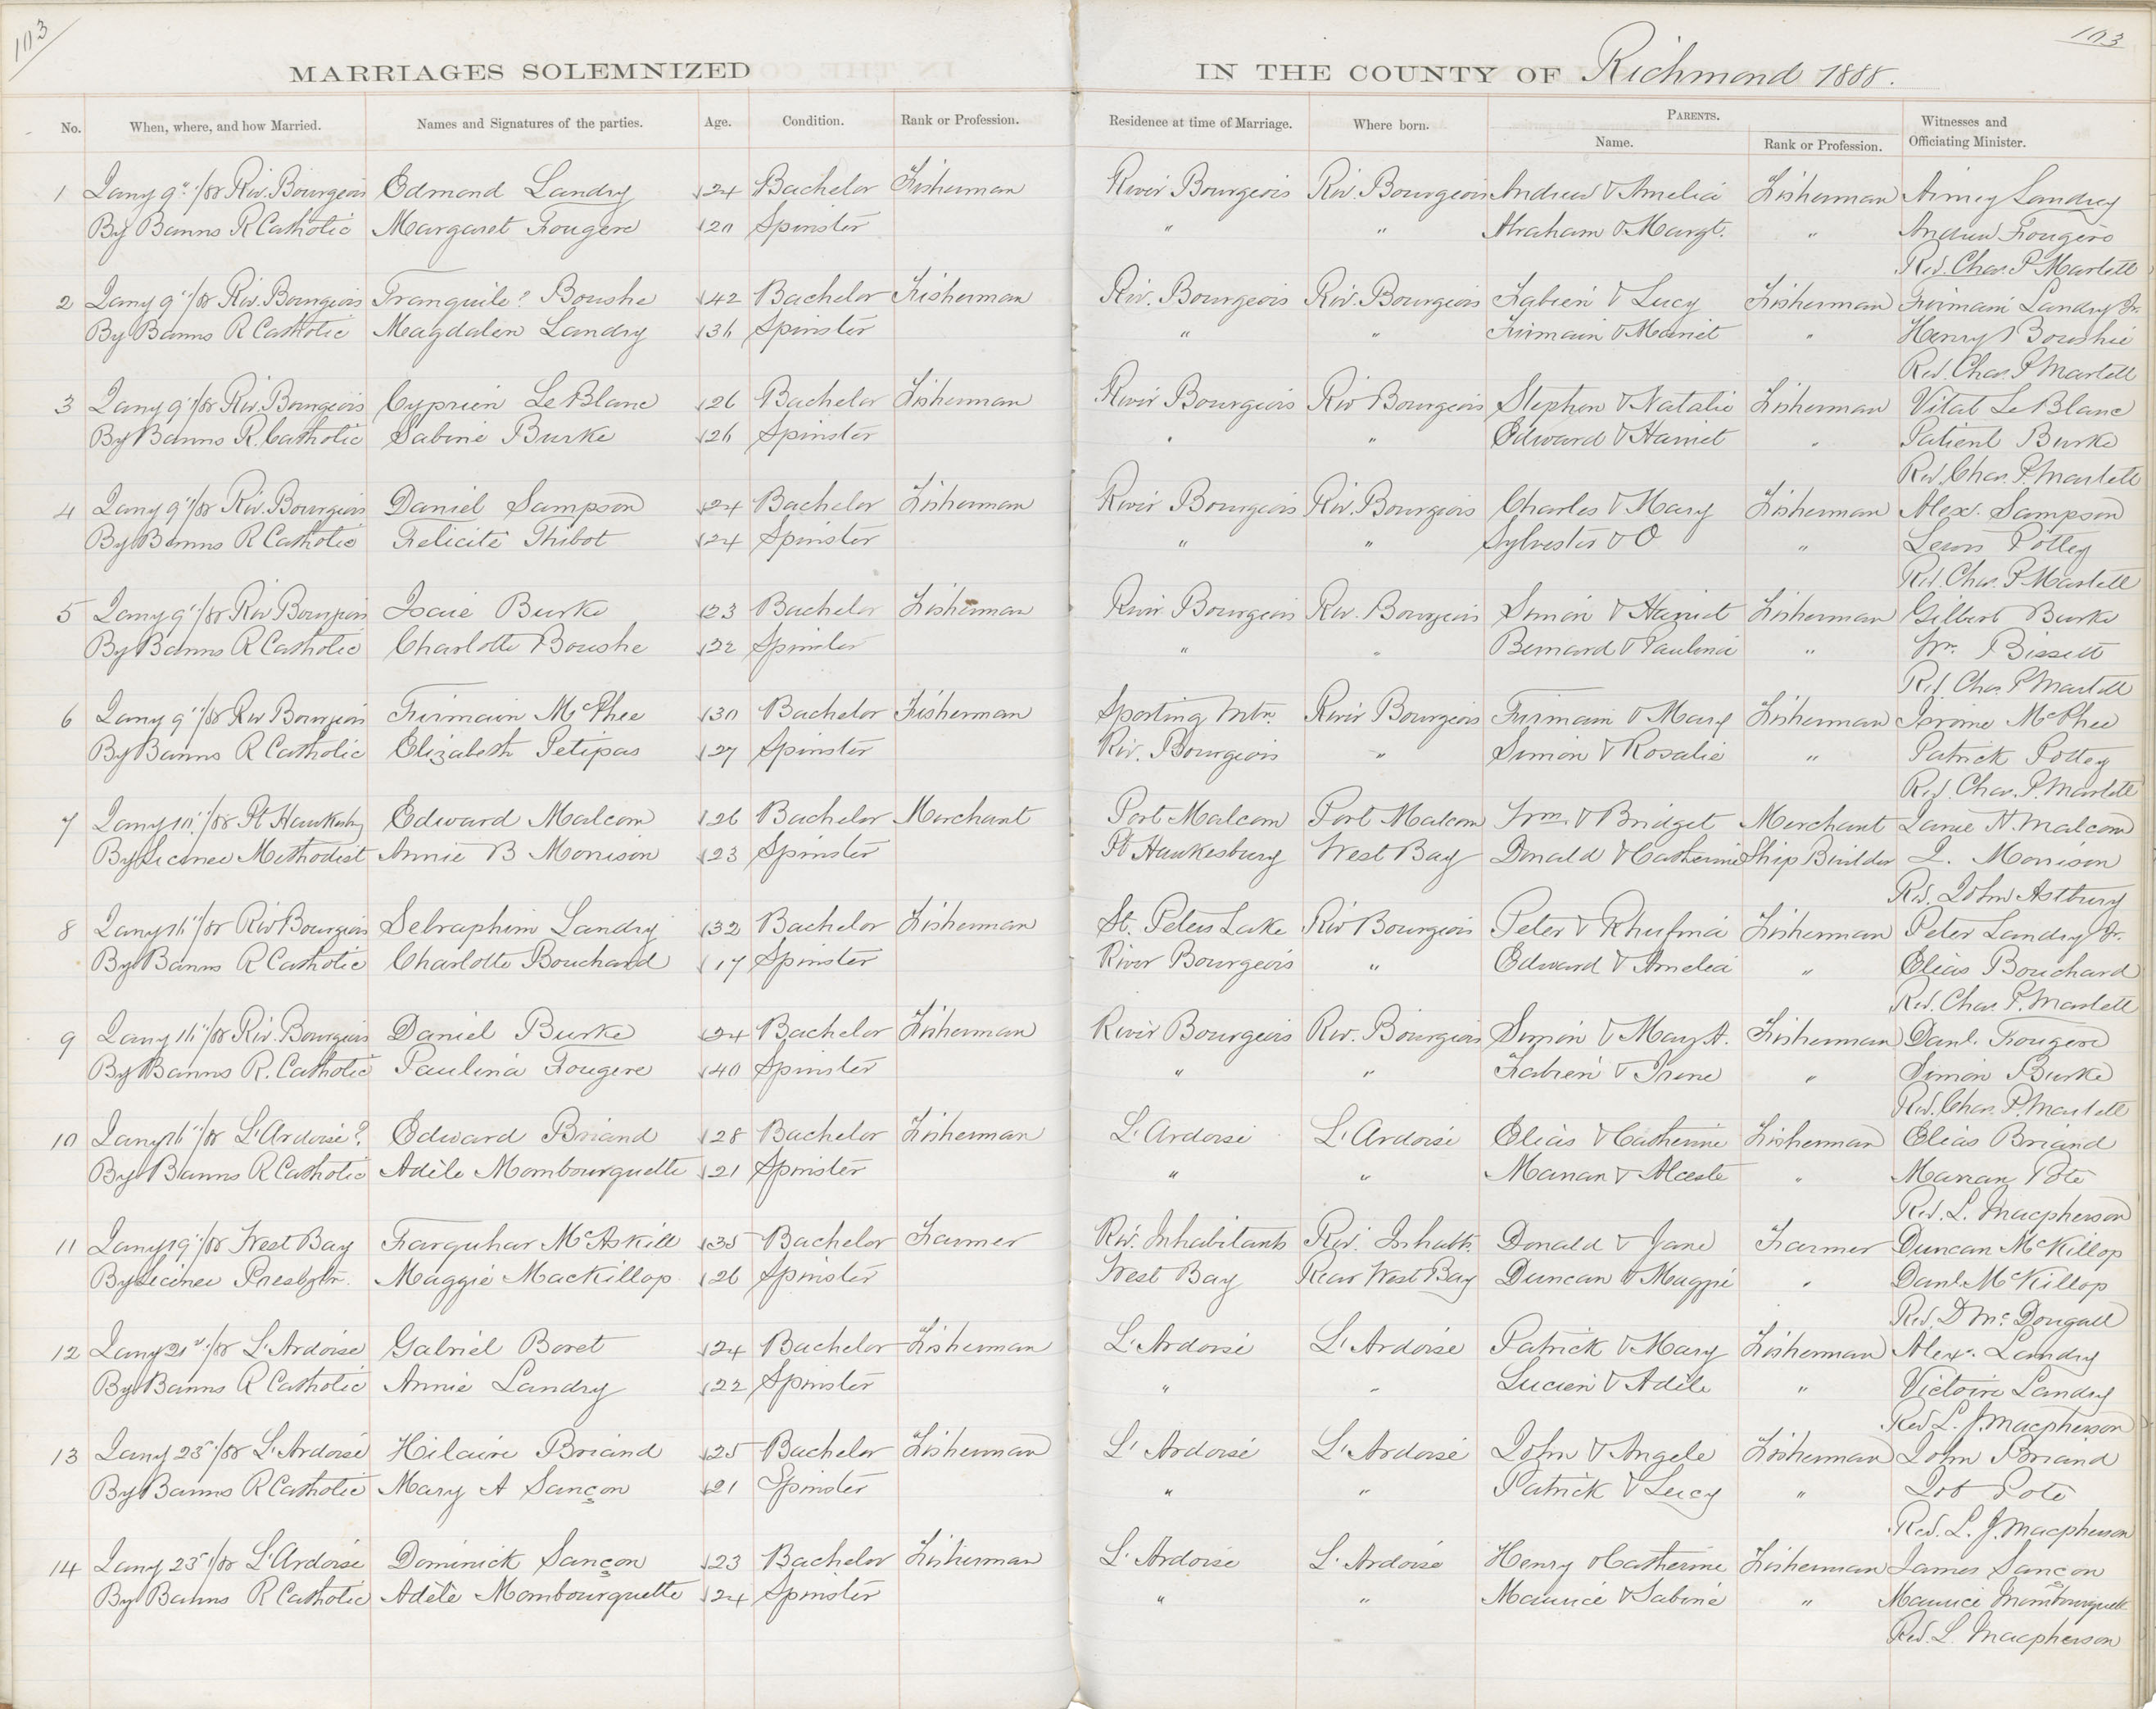 103
103
MARRIAGES SOLEMNIZED IN THE COUNTY OF Richmond 1888.
No. When, where, and how Married. Names and Signatures of the parties. Age. Condition. Rank or Profession. Residence at time of Marriage. Where born. PARENTS. Witnesses and
Name. Rank or Profession. Officiating Minister.
1 Jany 9"/88 Riv. Bourgeois Edmond Landry 24 Bachelor Fisherman River Bourgeois Riv. Bourgeois Andrew & Amelia Fisherman Landry
By Banns R Catholic Margaret Fougere 20 Spinster " " Abraham & Margt. " Andrew Fougere
Rev. Chas. P Martell
2 Jany 9"/88 Riv. Bourgeois Tranquile? Boushe 42 Bachelor Fisherman Riv. Bourgeois Riv. Bourgeois Fabien & Lucy Fisherman Firmain Landry Jr.
By Banns R Catholic Magdalen Landry 36 Spinster " " Firmain & Harriet " Henry Boushie
Rev. Chas. P Martell
3 Jany 9"/88 Riv. Bourgeois Cyprien LeBlanc 26 Bachelor Fisherman River Bourgeois Riv Bourgeois Stephen & Natalie Fisherman Vital LeBlanc
By Banns R. Catholic Sabine Burke 26 Spinster " " Edward & Harriet " Patient Burke
Rev. Chas. P. Martell
4 Jany 9"/88 Riv. Bourgeois Daniel Sampson 24 Bachelor Fisherman River Bourgeois Riv. Bourgeois Charles & Mary Fisherman Alex. Sampson
By Banns R Catholic Felicité Thibot 24 Spinster " " Sylvester & O " Lewis Pottey
Rev. Chas. P Martell
5 Jany 9"/88 Riv Bourgeois Isaie Burke 23 Bachelor Fisherman River Bourgeois Riv. Bourgeois Simon & Harriet Fisherman Gilbert Burke
By Banns R Catholic Charlotte Boushe 22 Spinster " " Bernard & Paulina " Wm. Bissett
Rev. Chas. P Martell
6 Jany 9"/88 Riv Bourgeois Firmain McPhee 30 Bachelor Fisherman Sporting Mtn. River Bourgeois Firmain & Mary Fisherman Jerome McPhee
By Banns R Catholic Elizabeth Petipas 27 Spinster Riv. Bourgeois " Simon & Rosalie " Patrick Pottey
Rev. Chas. P. Martell
7 Jany 10"/88 Pt Hawkesby Edward Malcom 26 Bachelor Merchant Port Malcom Port Malcom Wm. & Bridget Merchant Janie H. Malcom
By Licence Methodist Annie B Morrison 23 Spinster Pt Hawkesbury West Bay Donald & Catherine Ship Builder J. Morrison
Rev. John Astbury
8 Jany 16"/88 Riv Bourgeois Sebraphim Landry 32 Bachelor Fisherman St. Peters Lake Riv Bourgeois Peter & Fisherman Peter Landry Jr.
By Banns R Catholic Charlotte Bouchard 17 Spinster River Bourgeois " Edward & Amelia " Elias Bouchard
Rev. Chas. P. Martell
9 Jany 16"/88 Riv. Bourgeois Daniel Burke 24 Bachelor Fisherman River Bourgeois Riv. Bourgeois Simon & Mary A. Fisherman Danl. Fougere
By Banns R. Catholic Paulina Fougere 40 Spinster " " Fabien & Irene " Simon Burke
Rev. Chas. P. Martell
10 Jany 16"/88 L'Ardoise? Edward Briand 28 Bachelor Fisherman L'Ardoise L'Ardoise Elias & Catherine Fisherman Elias Briand
By Banns R Catholic Adèle Mombourquette 21 Spinster " " Marian & Alceste " Marian Pote
Rev. L. Macpherson
11 Jany 19"/88 West Bay Farquhar McAskill 35 Bachelor Farmer Riv. Inhabitants Riv. Inhabts. Donald & Jane Farmer Duncan McKillop
By Licence Presbytn. Maggie MacKillop 26 Spinster West Bay Rear West Bay Duncan & Maggie " Danl. McKillop
Rev. D McDougall
12 Jany 21"/88 L'Ardoise Gabriel Boret 24 Bachelor Fisherman L'Ardoise L'Ardoise Patrick & Mary Fisherman Alexr. Landry
By Banns R Catholic Annie Landry 22 Spinster " " Lucien & Adèle " Victoire Landry
Rev L. J. Macpherson
13 Jany 23"/88 L'Ardoise Hilaire Briand 25 Bachelor Fisherman L'Ardoise L'Ardoise John & Angele Fisherman John Briand
By Banns R Catholic Mary A Sançon 21 Spinster " " Patrick & Lucy " Job Pote
Rev. L. J. Macpherson
14 Jany 23"/88 L'Ardoise Dominick Sançon 23 Bachelor Fisherman L'Ardoise L'Ardoise Henry & Catherine Fisherman James Sançon
By Banns R Catholic Adèle Mombourquette 24 Spinster " " Maurice & Sabine " Maurice Mombourquett
Rev. L. Macpherson